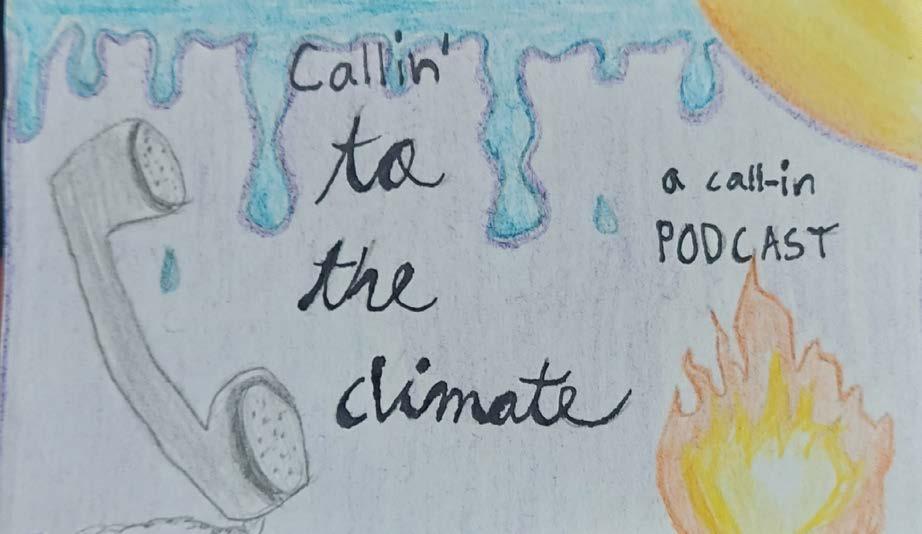 Callin'
to
the
climate
a call-in
PODCAST